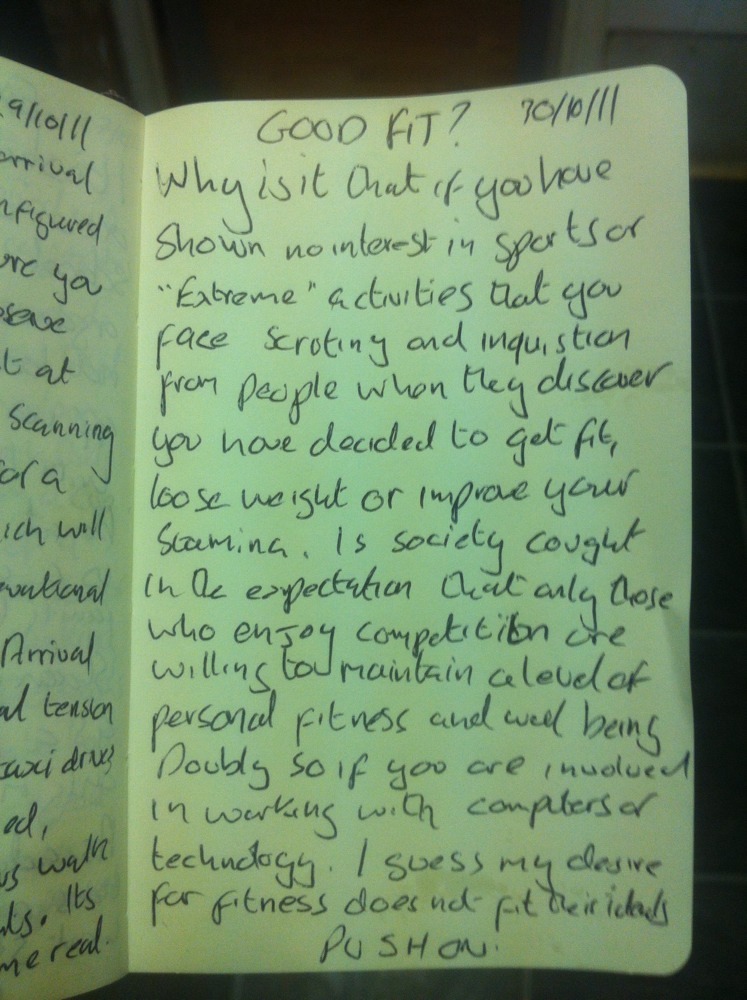 9/10/11
arrival
nfigured
you
t at
Scanning
for a
ich will
Arrival
al tension
taxi
ed,
us walk
ts. Its
me real.
GOOD FIT? 30/10/11
Why is it that if you have
shown no interest in sports or
"Extreme" activities that you
face scrotiny and inquistion
from people when they discover
you have decided to get fit,
loose weight or improve your
Stamina. Is society cought
in the expectation that only those
who enjoy competition are
willing to maintain a level of
personal fitness and well being
Doubly so if you are involved
in working with computers or
technology. I guess my desire
for fitness does not fit their ideals
PUSH ON.